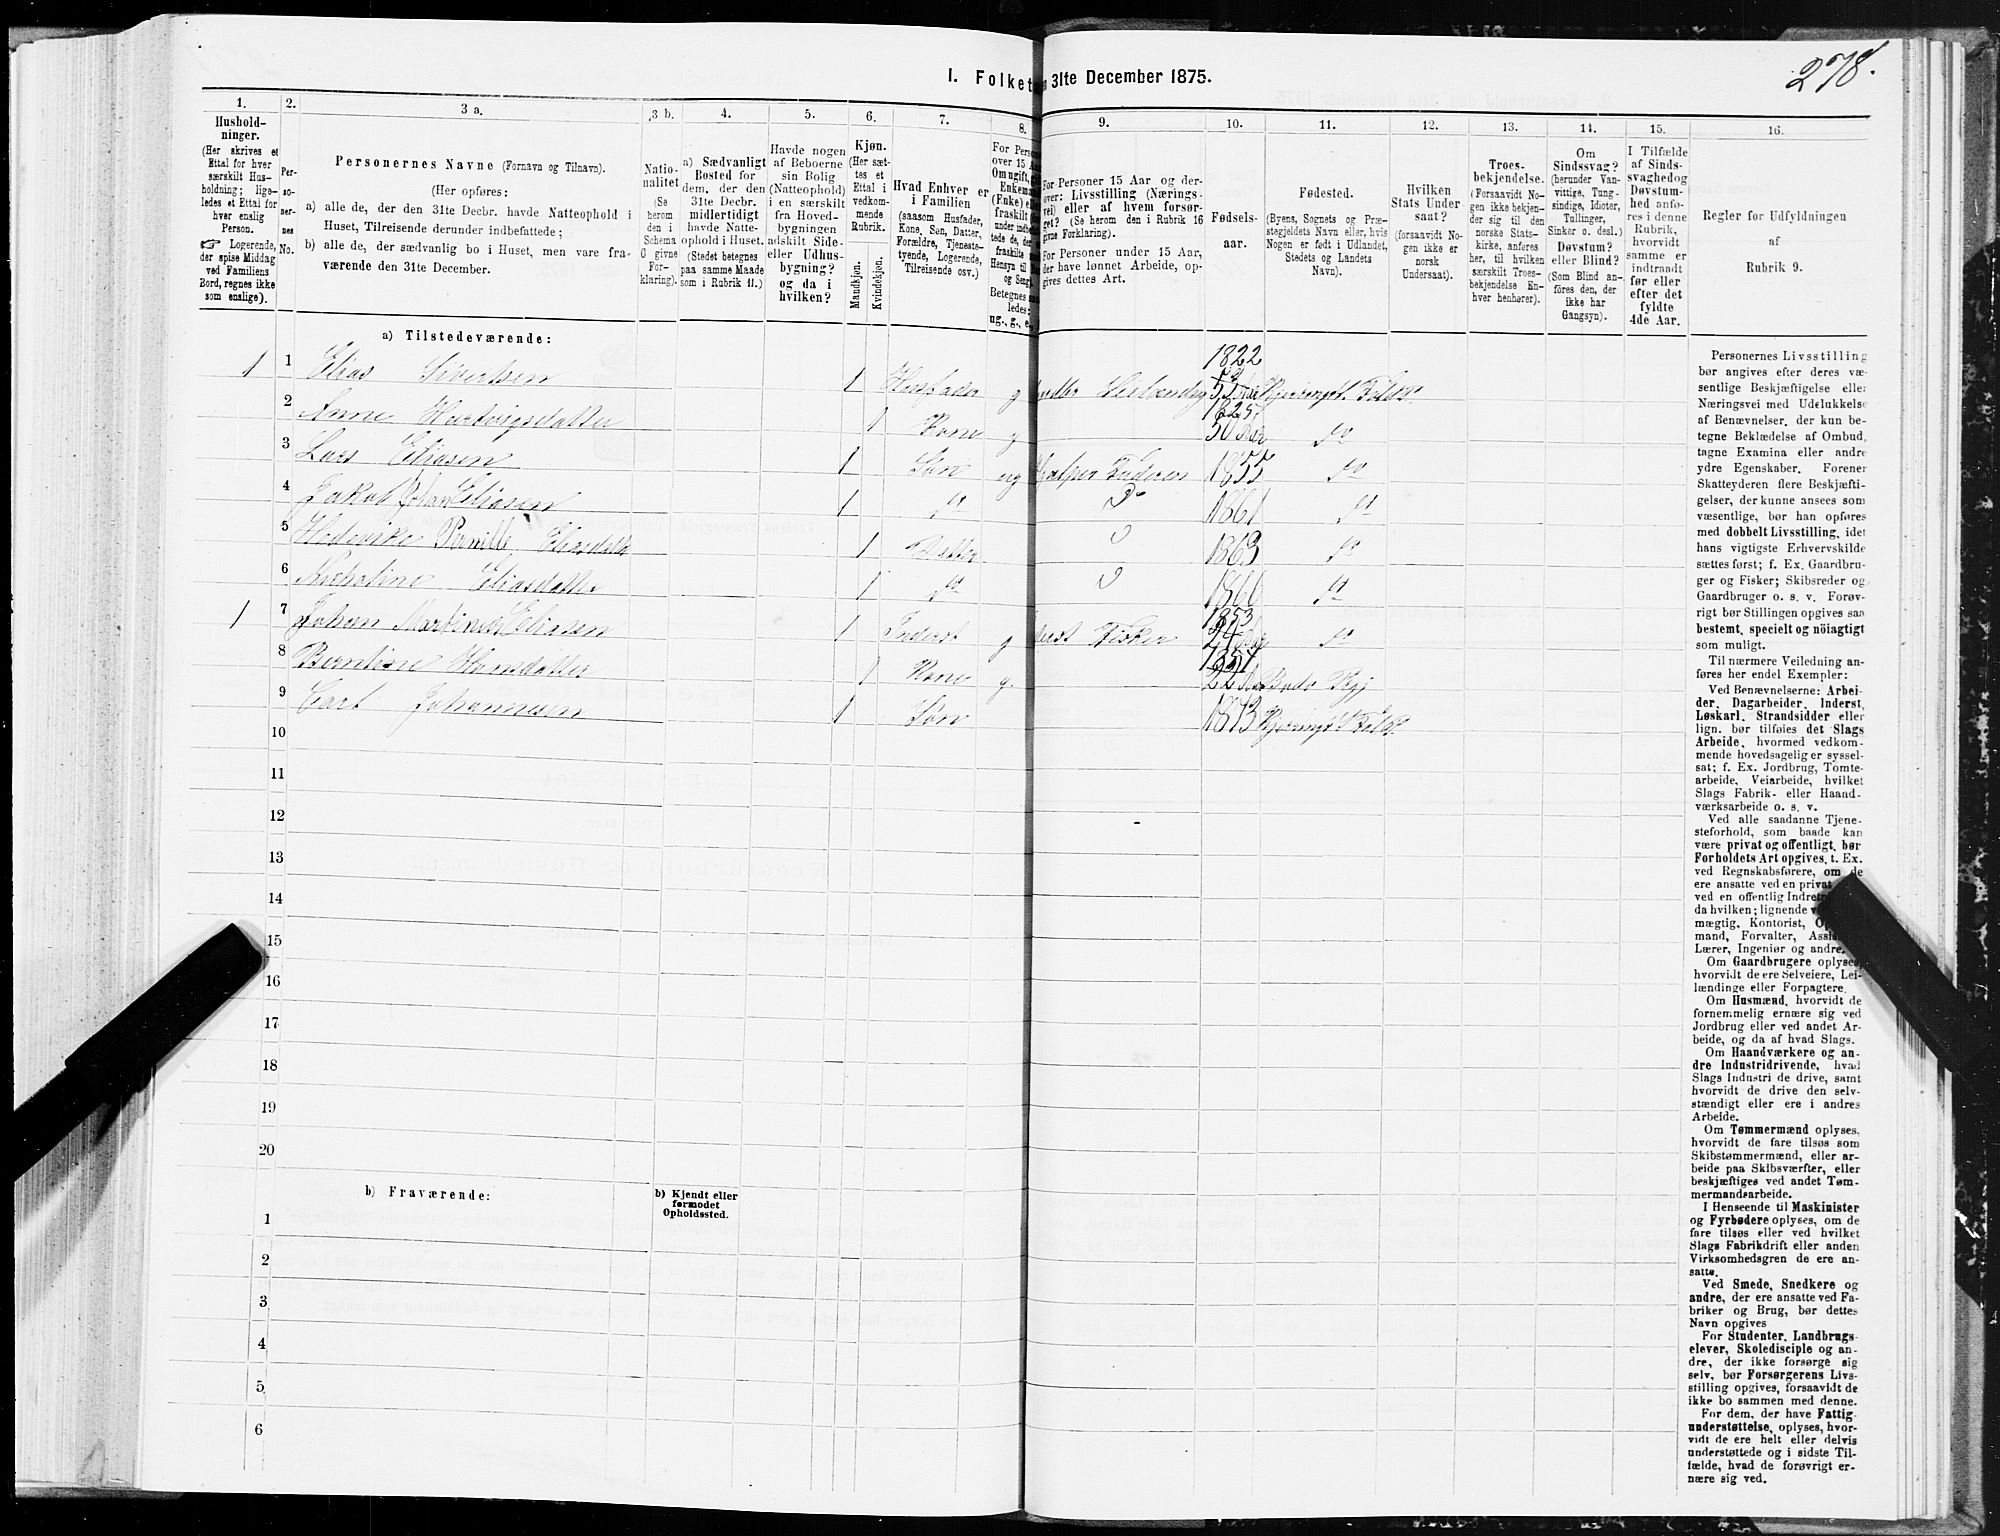 278.
I. Folket
n 31te December 1875.
1.
2.
3 a.
3 b.
4.
5.
6.
7.
8.
9.
10.
11.
12.
13.
14.
15.
16.
Hushold-
ninger.
(Her skrives et
Ettal for hver
særskilt Hus-
holdning; lige-
ledes et Ettal for
hver enslig
Person.
☞ Logerende,
der spise Middag
ved Familiens
Bord, regnes ikke
som enslige).
Per-
so-
ner-
nes
No.
Personernes Navne (Fornavn og Tilnavn).
(Her opføres:
a) alle de, der den 31te Decbr. havde Natteophold i
Huset, Tilreisende derunder indbefattede;
b) alle de, der sædvanlig bo i Huset, men vare fra-
værende den 31te December.
Natio-
nalitet
(Se
herom
den i
Schema
O givne
For-
klaring).
a) Sædvanligt
Bosted for
dem, der den
31te Decbr.
midlertidigt
havde Natte-
ophold i Huset.
(Stedet betegnes
paa samme Maade
som i Rubrik 11.)
Havde nogen
af Beboerne
sin Bolig
(Natteophold)
i en særskilt
fra Hoved-
bygningen
adskilt Side-
eller Udhus-
bygning?
og da i
hvilken?
Kjøn.
(Her sæt-
tes et
Ettal i
vedkom-
mende
Rubrik.
Mandkjøn.
Kvindekjøn.
Hvad Enhver er
i Familien
(saasom Husfader,
Kone, Søn, Datter,
Forældre, Tjeneste-
tyende, Logerende,
Tilreisende osv.)
For Perso
over 15 Aa
Om ugift, gi
Enkema
(Enke) e
fraskilt
under indbe
tede de, de
fraskilte
Hensyn til
og Seng
Betegnes s
ledes:
ug., g., e.
For Personer 15 Aar og der-
over: Livsstilling (Nærings-
vei) eller af hvem forsør-
get? (Se herom den i Rubrik 16
givne Forklaring).
For Personer under 15 Aar,
der have lønnet Arbeide, op-
gives dettes Art.
Fødsels-
aar.
Fødested.
(Byens, Sognets og Præ-
stegjeldets Navn eller, hvis
Nogen er født i Udlandet,
Stedets og Landets
Navn).
Hvilken
Stats Under
saat?
(forsaavidt No-
gen ikke er
norsk
Undersaat).
Troes-
bekjendelse.
(Forsaavidt No-
gen ikke bekjen-
der sig til den
norske Stats-
kirke, anføres
her, til hvilken
særskilt Troes-
bekjendelse En-
hver henhører).
Om
Sindssvag?
(herunder Van-
vittige, Tung-
sindige, Idioter,
Tallinger,
Sinker o. desl.)
Døvstum?
eller Blind?
(Som Blind an-
føres den, der
ikke har
Gangsyn).
I Tilfælde
af Sinds-
svaghedog
Døvstum-
hed anfø-
res i denne
Rubrik,
hvorvidt
samme er
indtraadt
før eller
efter det
fyldte
4de Aar.
Regler for Udfyldningen
af
Rubrik 9.
a) Tilstedeværende:
1 1 Elias Sivertsen 1 Husfader g 1822 Kjerringø
2 Anne Hartvigsdatter 1 Kone g 1825 50 Aar do
3 Lars Eliasen 1 Søn ug Hjelper Faderen 1855 do
4 Jakob Johan Eliasen 1 do 1861 do
5 Pernille 1 Datter 1863 do
6 Eliasdatter 1 do 1866 do
1 7 Johan Martinus Eliasen 1 Inderst g Fisker 1853 do
8 Berntine Hansdatter 1 Kone g. Bodø Pgj
9 Carl Johannesen 1 Søn 1873 Kjerringø
10
11
12
13
14
15
16
17
18
19
20
b) Fraværende:
b) Kjendt eller
formodet
Opholdssted.
1
2
3
4
5
6
Personernes Livsstilling
bør angives efter deres væ-
sentlige Beskjæftigelse eller
Næringsvei med Udelukkelse
af Benævnelser, der kun be-
tegne Beklædelse af Ombud,
tagne Examina eller andre
ydre Egenskaber. Forener
Skatteyderen flere Beskjæfti-
gelser, der kunne ansees som
væsentlige, bør han opføres
med dobbelt Livsstilling, idet
hans vigtigste Erhvervskilde
sættes først; f. Ex. Gaardbru-
ger og Fisker; Skibsreder og
Gaardbruger o. s. v. Forøv-
rigt bør Stillingen opgives saa
bestemt, specielt og nöiagtigt
som muligt.
Til nærmere Veiledning an-
føres her endel Exempler:
Ved Benævnelserne: Arbei-
der, Dagarbeider, Inderst,
Løskarl, Strandsidder eller
lign. bør tilføies det Slags
Arbeide, hvormed vedkom-
mende hovedsagelig er syssel-
sat; f. Ex. Jordbrug, Tomte-
arbeide, Veiarbeide, hvilket
Slags Fabrik- eller Haand-
værksarbeide o. s. v.
Ved alle saadanne Tjene-
steforhold, som baade kan
være privat og offentligt, bør
Forholdets Art opgives, t. Ex.
ved Regnskabsførere, om de
ere ansatte ved en privat
ved en offentlig Indret
da hvilken; lignende
mægtig, Kontorist, O
mand, Forvalter, Assi
Lærer, Ingeniør og andre.
Om Gaardbrugere oplyses,
hvorvidt de ere Selveiere, Lei-
lændinge eller Forpagtere.
Om Husmænd, hvorvidt de
fornemmelig ernære sig ved
Jordbrug eller ved andet Ar-
beide, og da af hvad Slags.
Om Haandværkere og an-
dre Industridrivende, hvad
Slags Industri de drive, samt
hvorvidt de drive den selv-
stændigt eller ere i andres
Arbeide.
Om Tømmermænd oplyses,
hvorvidt de fare tilsøs som
Skibstømmermænd, eller ar-
beide paa Skibsværfter, eller
beskjæftiges ved andet Tøm-
mermandsarbeide.
I Henseende til Maskinister
og Fyrbødere oplyses, om de
fare tilsøs eller ved hvilket
Slags Fabrikdrift eller anden
Virksomhedsgren de ere an-
satte.
Ved Smede, Snedkere og
andre, der ere ansatte ved Fa-
briker og Brug, bør dettes
Navn opgives
For Studenter, Landbrugs-
elever, Skoledisciple og an-
dre, der ikke forsørge sig
selv, bør Forsørgerens Livs-
stilling opgives, forsaavidt de
ikke bo sammen med denne.
For dem, der have Fattig-
understøttelse, oplyses, hvor-
vidt de ere helt eller delvis
understøttede og i sidste Til-
fælde, hvad de forøvrigt er-
nære sig ved.